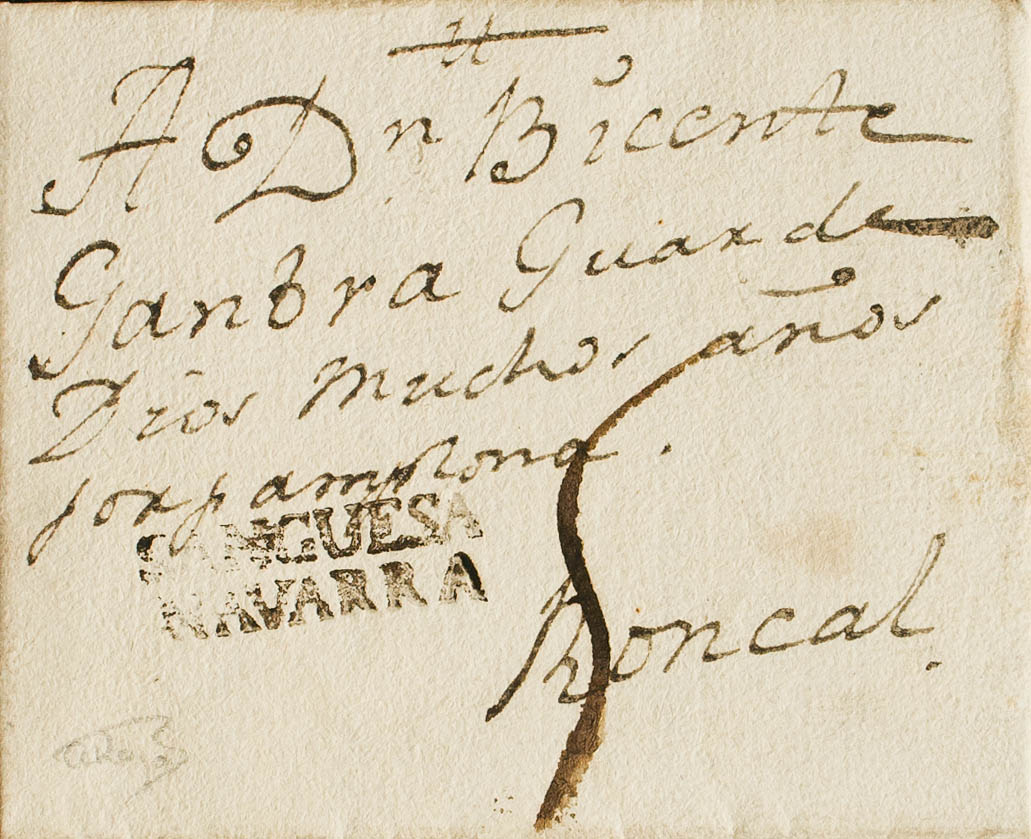 A Dn Bicente
Ganbra Guarde
Dios muchos años
por pamplona.
SANGUESA
NAVARRA
Roncal.
5